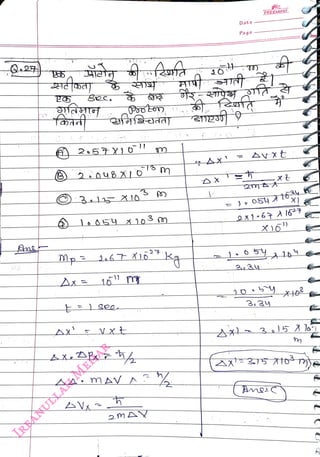 Date
Page
Q.27 एक प्रोटॉन की स्थिति 10⁻¹¹ m की
सटीकता के साथ मापी जाती है।
एक sec. के बाद गैर-सापेक्ष गति से
गतिमान (Proton की स्थिति में
कितनी अनिश्चितता आएगी ?
Ⓐ 2.57×10⁻¹¹ m
Ⓑ 2.048×10⁻¹³ m
Ⓒ 3.15 ×10³ m
Ⓓ 1.054 ×10³ m
Ans:-
Mp = 1.67 ×10⁻²⁷ Kg
Δx = 10⁻¹¹ m
t = 1 sec.
Δx' = v×t
Δx . ΔPx = ħ/2
= ħ/2
ΔVx = ħ/2mΔV
∵ Δx' = Δv×t
Δx' = ħ/2mΔx ×t
= 1.054×10⁻³⁴×1
2×1.67×10⁻²⁷
×10⁻¹¹
= 1.054/3.34 ×10⁴
= 10.54/3.34 ×10³
Δx' = 3.15 ×10³
m
Δx' = 3.15 ×10³ m
Ans:C
IRFANULLAH MEHAR